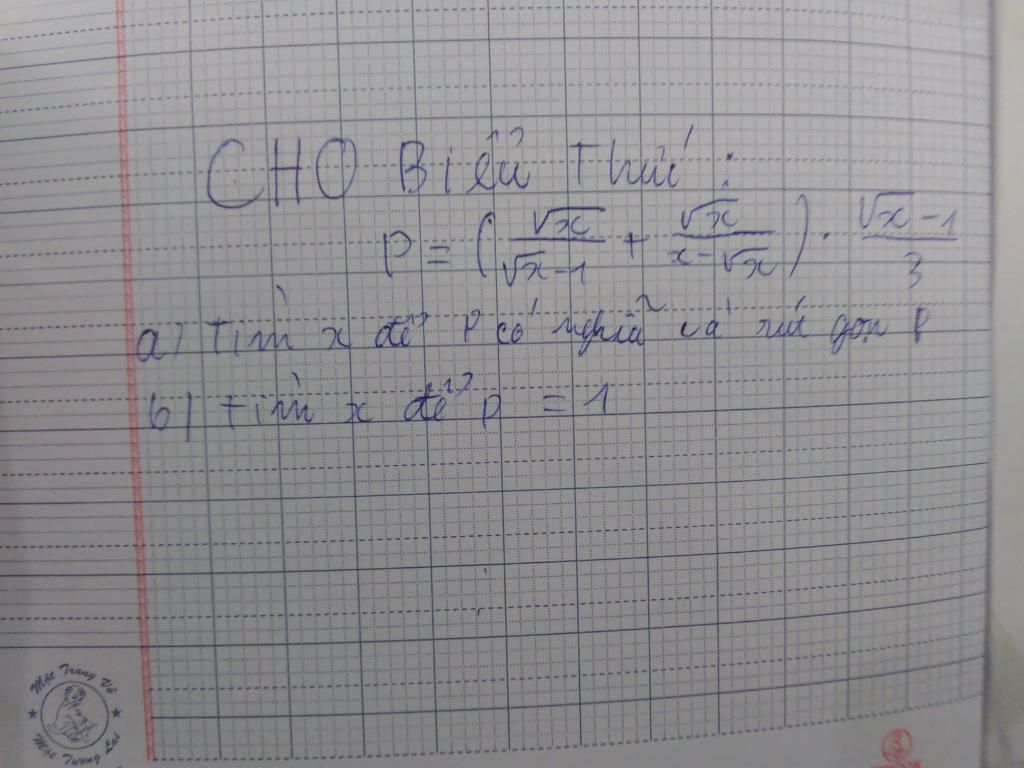 CHO Biểu Thức :
P = ( √x / (√x - 1) + √x / (x - √x) ) . (√x - 1) / 3
a) Tìm x để P có nghĩa và rút gọn P
b) tìm x để P = 1
Mộc Trang Vở
Mộc Tương Lai